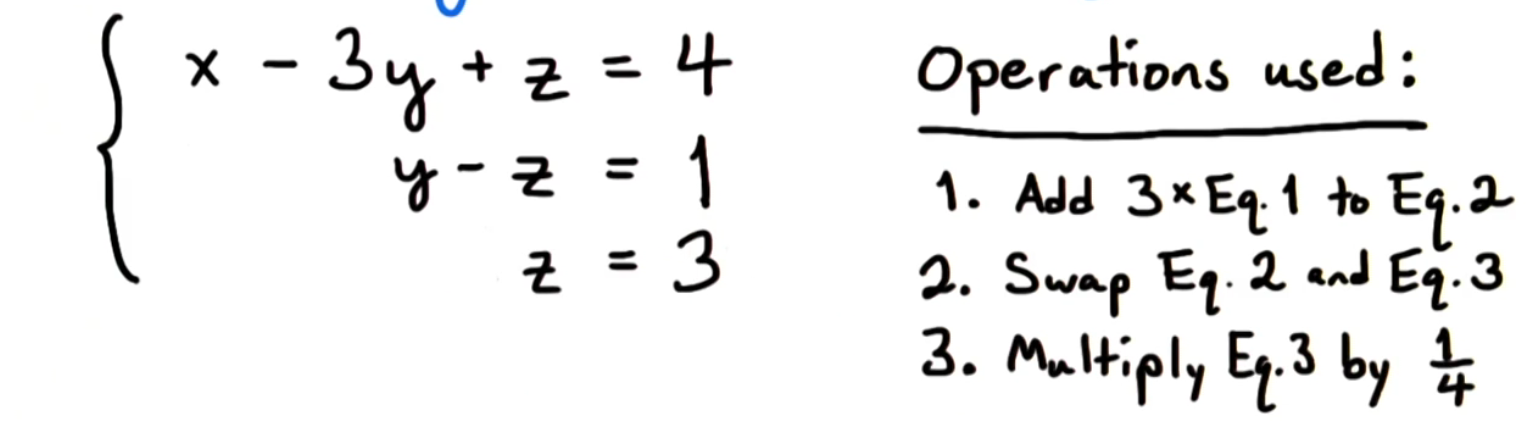 x - 3y + z = 4
y - z = 1
z = 3
Operations used:
1. Add 3×Eq.1 to Eq.2
2. Swap Eq.2 and Eq.3
3. Multiply Eq.3 by 1/4